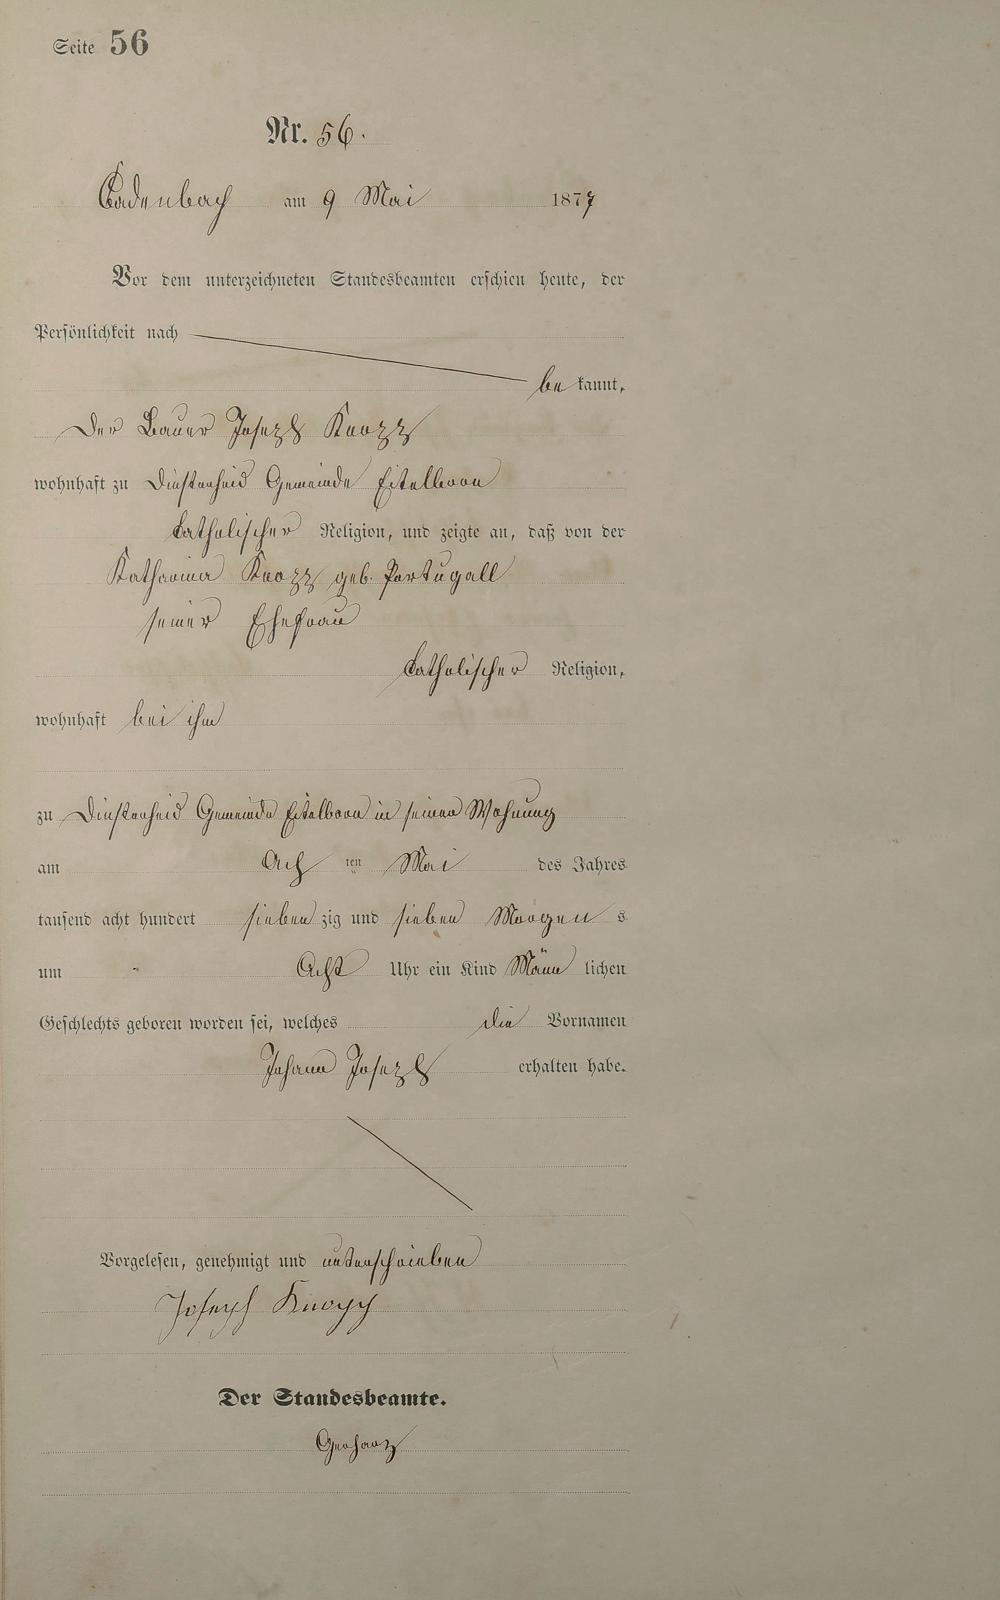 Seite 56
Nr. 56.
Cadenbach am 9 Mai 1877
Vor dem unterzeichneten Standesbeamten erschien heute, der
Persönlichkeit nach
be kannt,
Der Bauer Joseph Knopp
wohnhaft zu Dinsterheid Gemeinde Eitelborn
katholischer Religion, und zeigte an, daß von der
Katharina Knopp geb. Portugall
seiner Ehefrau
katholischer Religion,
wohnhaft bei ihm
zu Dinsterheid Gemeinde Eitelborn in seiner Wohnung
am Ach ten Mai des Jahres
tausend acht hundert sieben zig und sieben Morgen s
um Acht Uhr ein Kind Männ lichen
Geschlechts geboren worden sei, welches die Vornamen
Johann Joseph erhalten habe.
Vorgelesen, genehmigt und unterschrieben
Joseph Knopp
Der Standesbeamte.
Gerharz